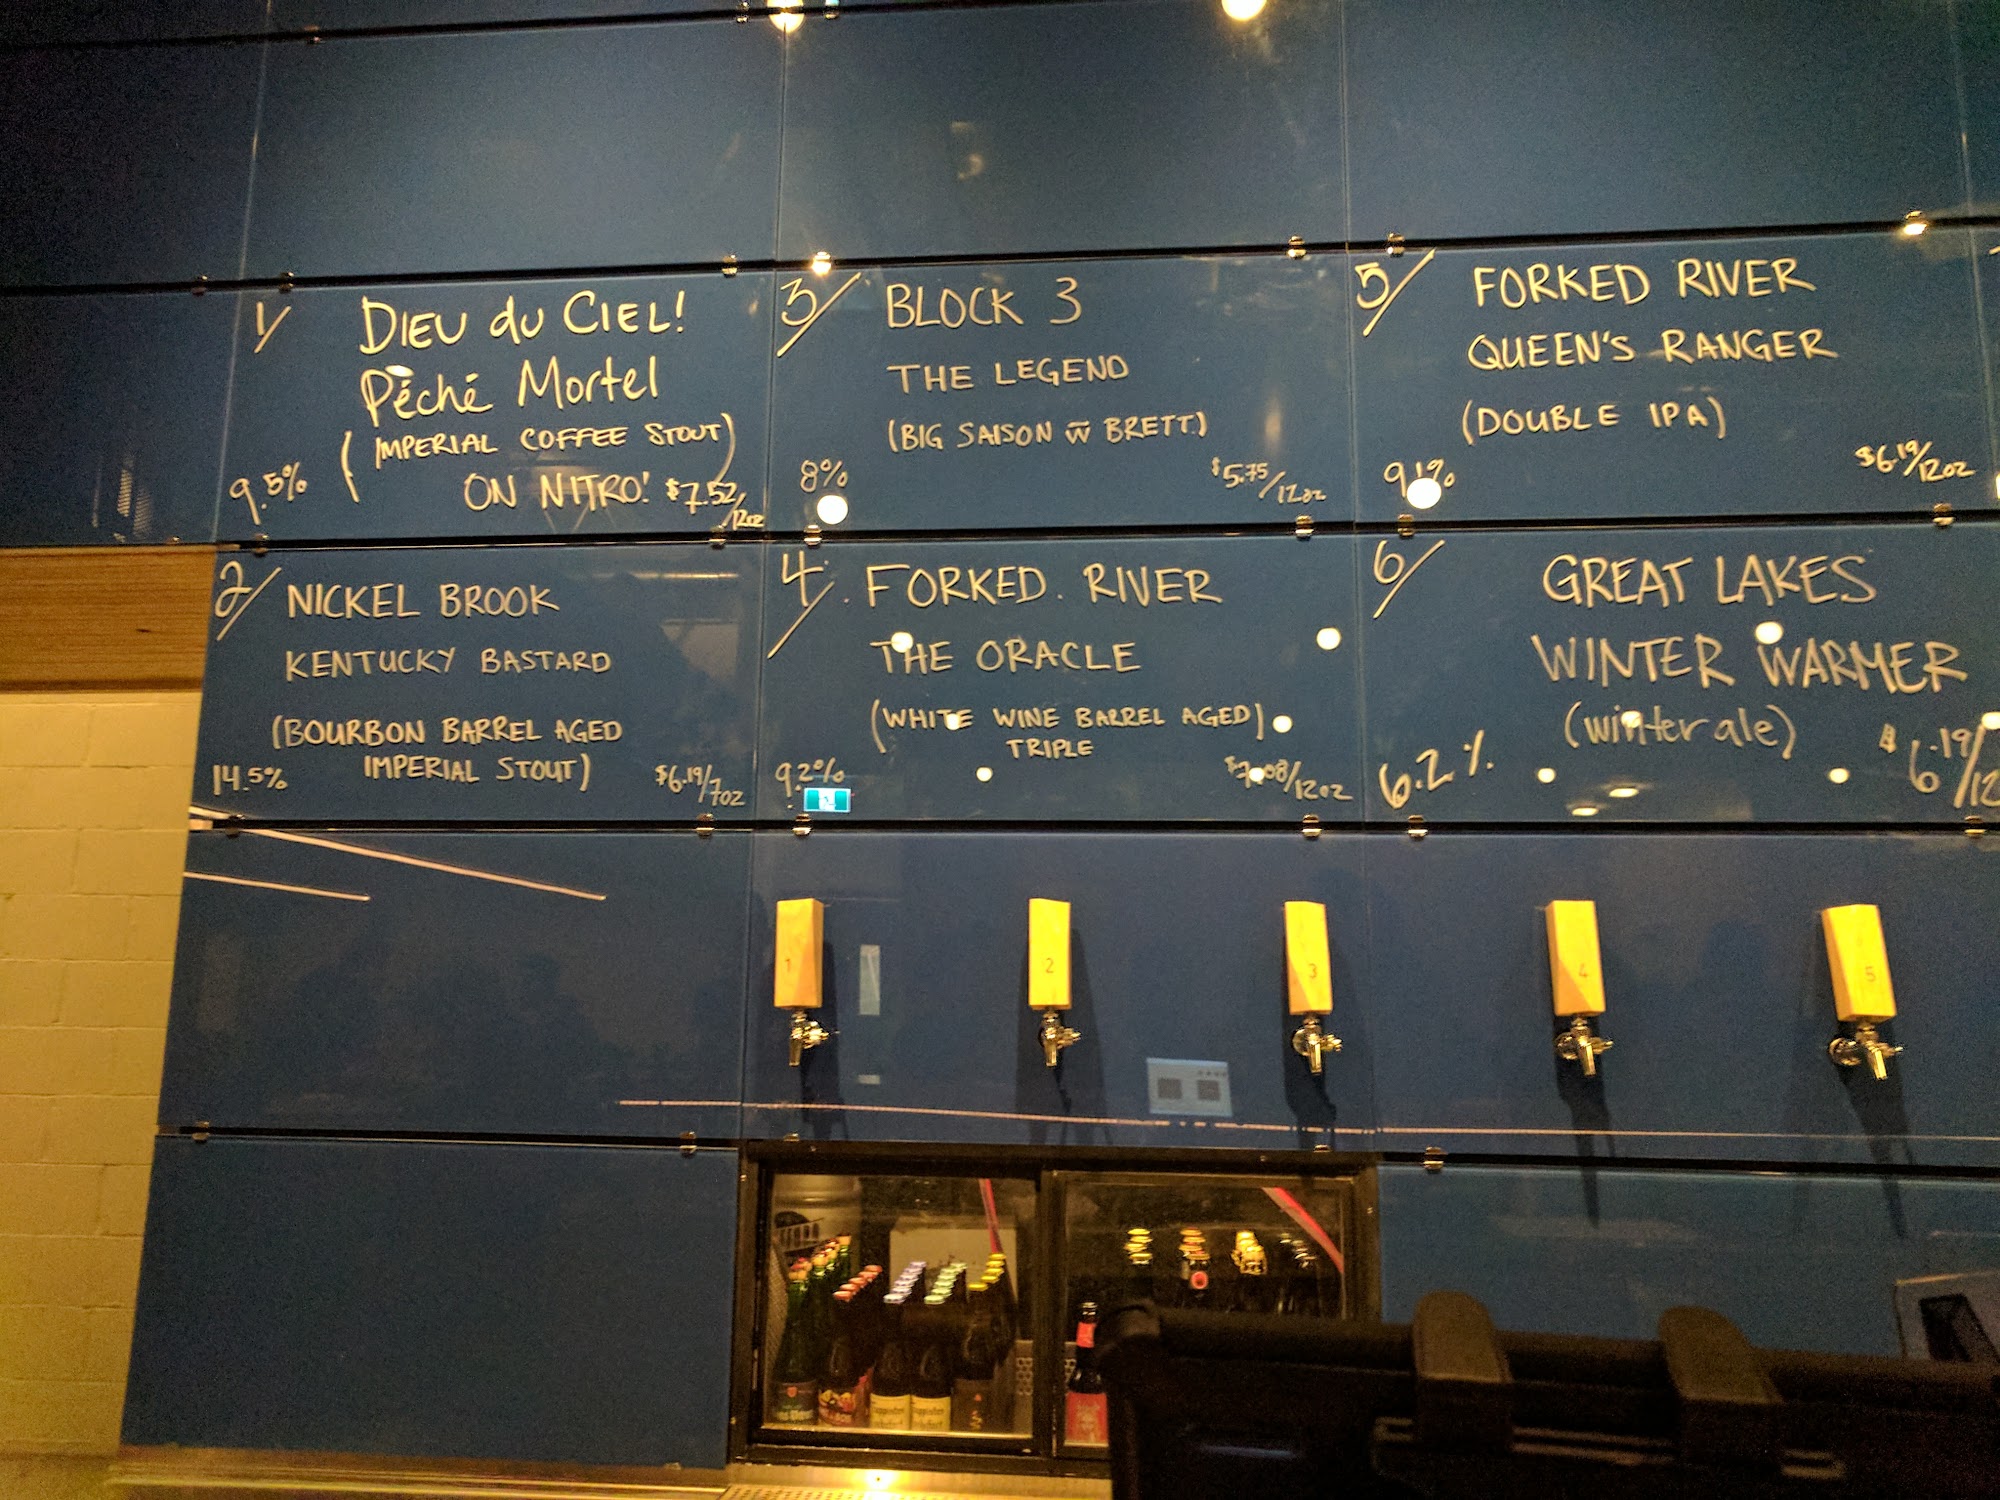 1/
DIEU dU CIEL!
Péché Mortel
(IMPERIAL COFFEE STOUT)
ON NITRO!
9.5%
$7.52/12oz
2/
NICKEL BROOK
KENTUCKY BASTARD
(BOURBON BARREL AGED
IMPERIAL STOUT)
14.5%
$6.19/7oz
3/
BLOCK 3
THE LEGEND
(BIG SAISON W BRETT)
8%
$5.75/12oz
4/
FORKED RIVER
THE ORACLE
(WHITE WINE BARREL AGED)
TRIPLE
9.2%
$7.08/12oz
5/
FORKED RIVER
QUEEN'S RANGER
(DOUBLE IPA)
9.1%
$6.19/12oz
6/
GREAT LAKES
WINTER WARMER
(winter ale)
6.2%
$6.19/12
1
2
3
4
5